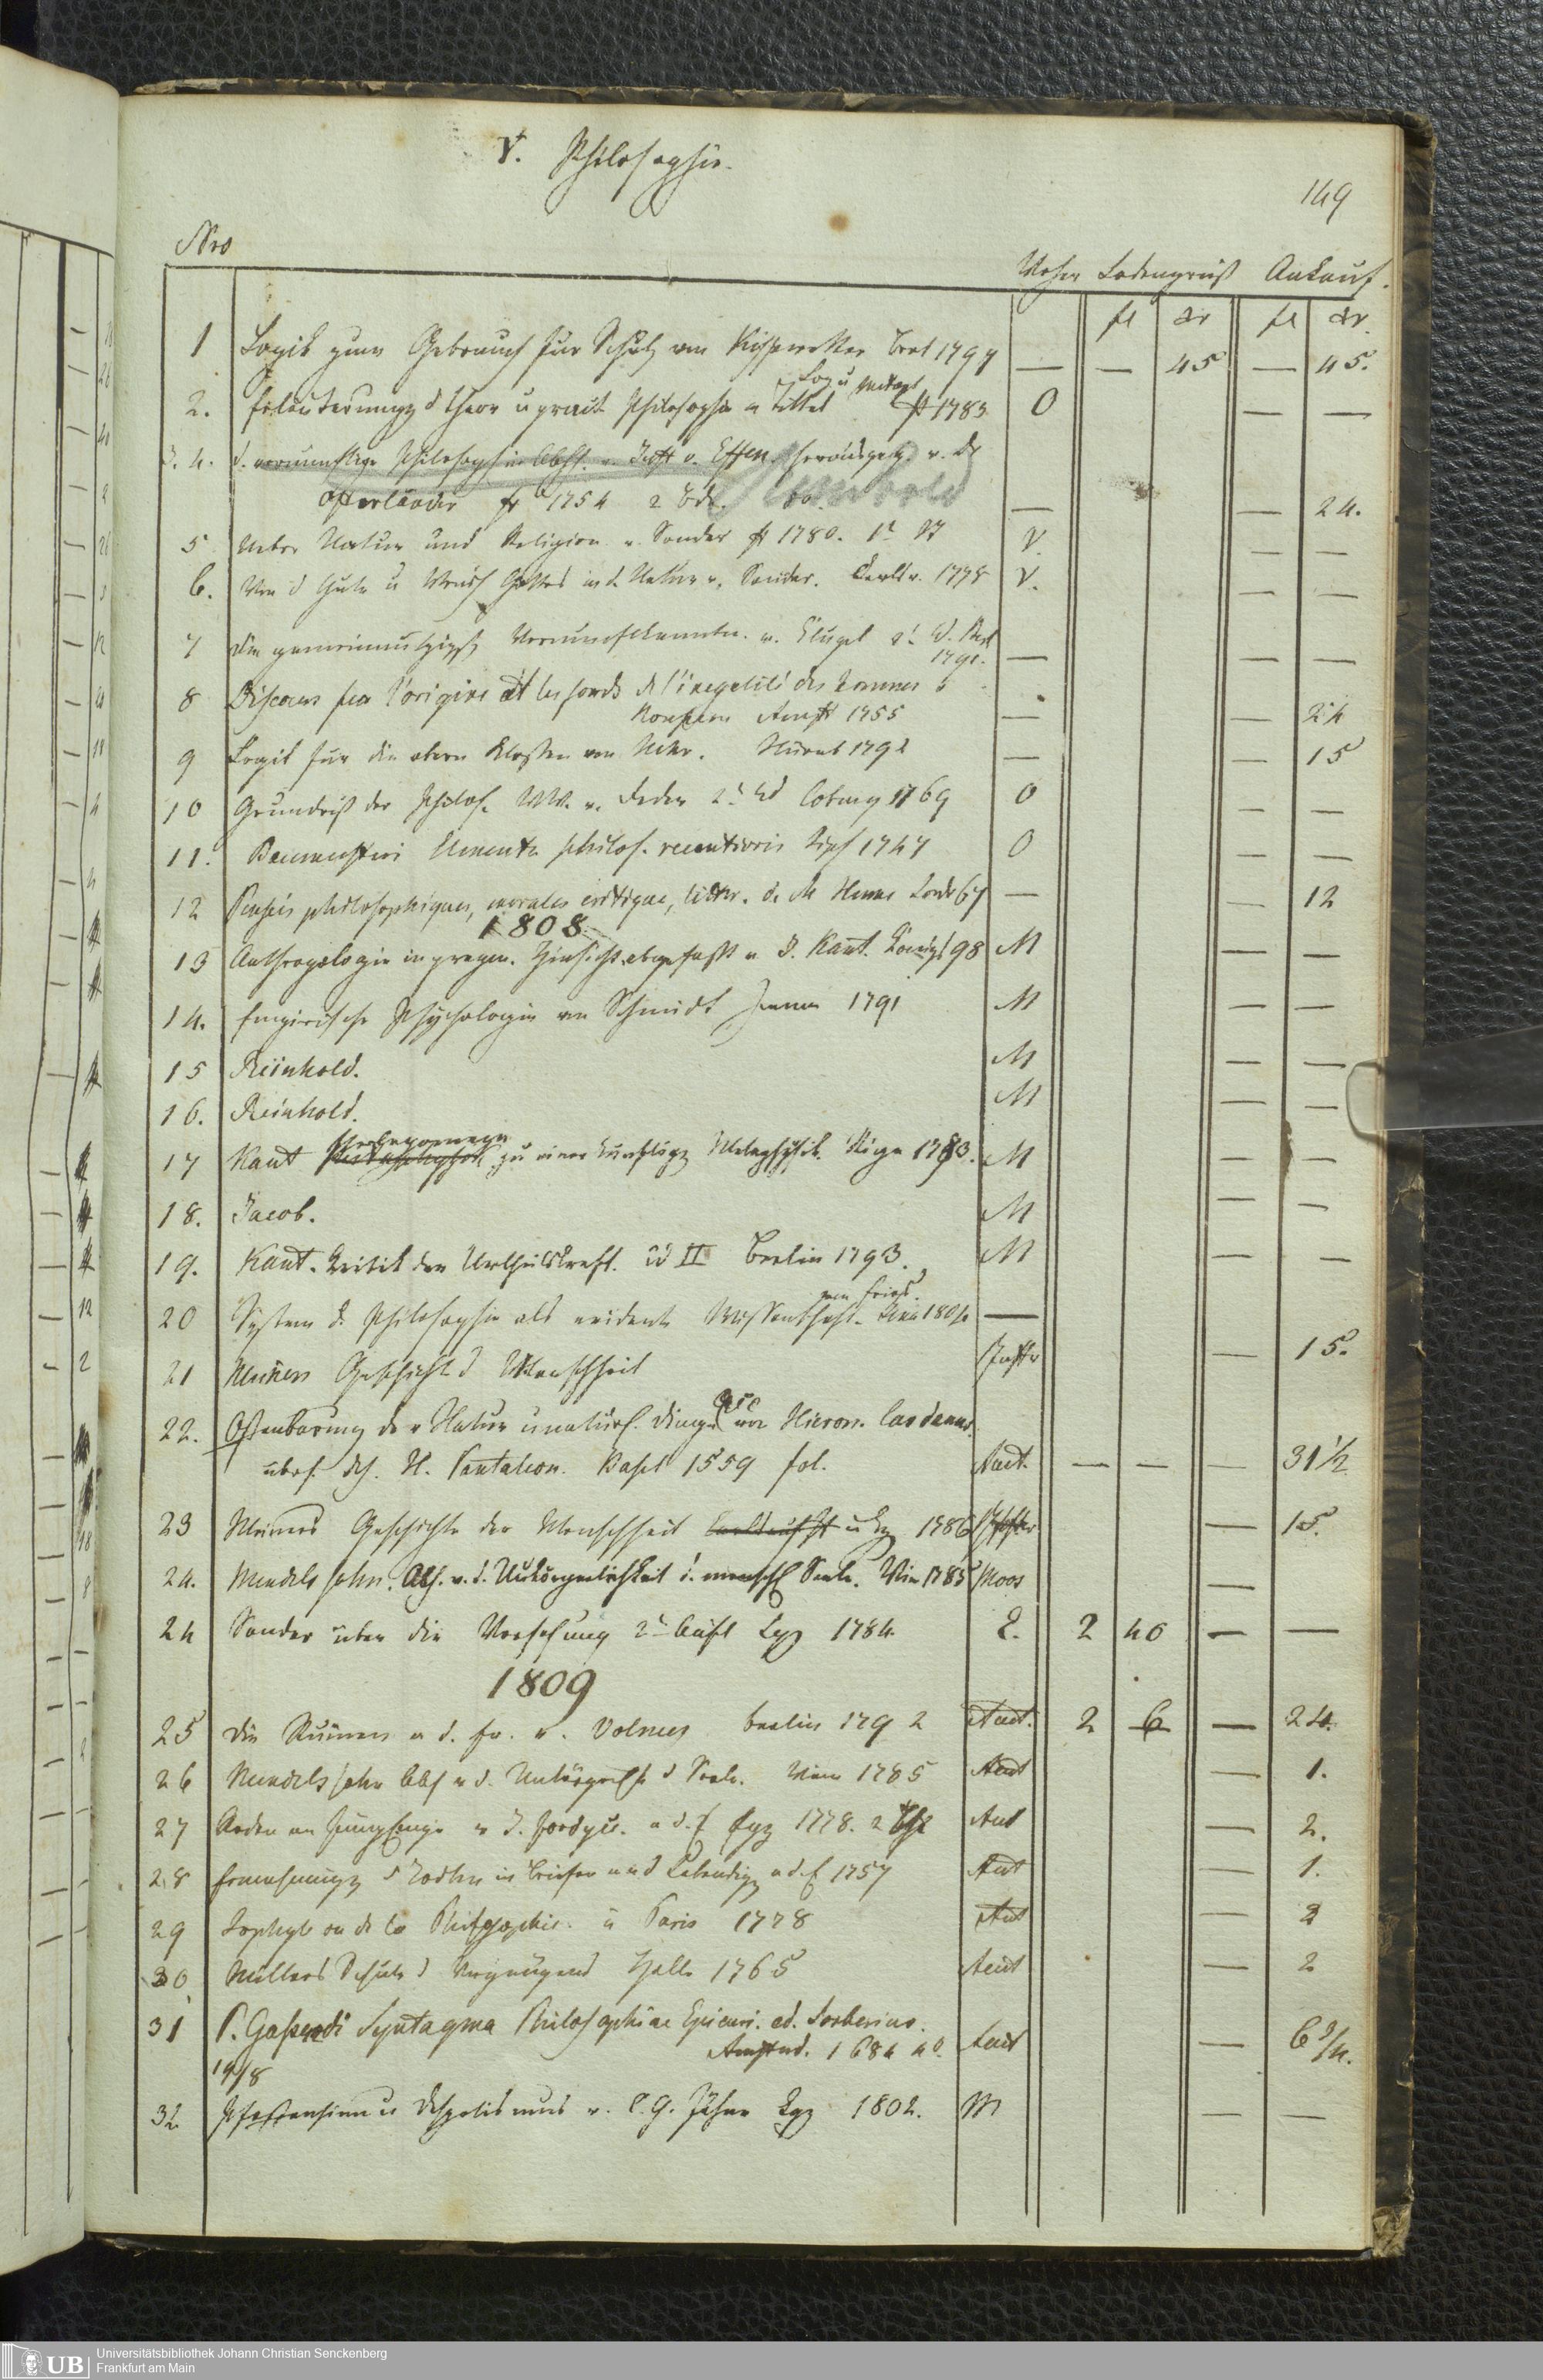 V. Philosophie.
149
Nro
Woher Ladenpreiß Ankauf.
fl xr fl xr.
1 Logik zum Gebrauch für Schulen von Kiesewetter Berl 1797 — — 45 — 45.
Log u Metaph
2. Erläuterungen d theor u prakt Philosophie v Tittel ff 1783 O — —
3. 4. d. vernünftige Philosoph in Abh. v. Just v. Effen. herausgeg. v. Dr
Osterländer ff 1754 2 Bde. — — 24.
5 Ueber Natur und Religion v. Sander ff 1780. 1r V. — —
6. Von d Güte u Weish Gottes in d. Natur v. Sander. Carlsr. 1778 V. — —
7 Die gemeinnützigsten Vernunftkenntn. v. Klügel 2t Berl
1791. — — —
8 Discours sur l'origine et les fonds de l'inegalité des hommes
Amst 1755 — — 24
9 Logik für die obern Klassen von Nürnb 1792 — — 15
10 Grundriß der Philos. WW. v. Feder 2t Coburg 1769 O — —
11. Baumeisteri Elementa philos. recentioris Lips 1747 O — —
12 Pensées philosophiques, morales critique, litter. de Mr Hume Lond 67 — — 12
1808
13 Anthropologie in pragm. Hinsicht abgefaßt v I. Kant. Königsb 98 M — —
14. Empirische Psychologie von Schmidt Jena 1791 M — —
15 Reinhold. M — —
16. Reinhold. M — —
Prolegomena
17 Kant zu einer künftigen Metaphysik. Riga 1783. M — —
18. Jacob. M — —
19. Kant. Kritik der Urtheilskraft. Ed II Berlin 1793. M — —
von Fries.
20 System d. Philosophie als evidente Wissenschaft. 1804 —
21 Meiners Geschichte d Menschheit — 15.
22. Offenbarung der Natur u natürl. Dinge von Hieron. Cardanus
übers. dch. H. Pantaleon. Basel 1559 fol. Auct. — — — 31 1/2
23 Meiners Geschichte der Menschheit 1786 — 15.
24. Mendelssohn. Abh. v. d. Unkörperlichkeit d. menschl Seele. Wien 1785 Moos —
24 Sander über die Vorsehung 2t Aufl Lpz 1784. E. 2 40 — —
1809
25 Die Ruinen a d. fr. v. Volney Berlin 1792 Auct. 2 6 — 24.
26 Mendelssohn Abh v d. Unkörperlichk d Seele. Wien 1785 Auct — 1.
27 Reden an Jungfrauen v J. Fordyce. a d. E Lpz 1778. 2 Thl Auct — 2.
28 d Todten in Briefen an d Lebendigen a d. E 1757 Auct — 1.
29 Sophyle ou de la Philosophie. à Paris 1778 Auct — 2
30 Millers Schule d Vergnügens Halle 1765 Auct — 2
31 P. Gassendi Syntagma Philosophiae Epicuri. ed. Sorberius.
Amstd. 1684 4°. Auct — 6 3/4.
32. u Despotismus v. Lpz 1802. M — —
Universitätsbibliothek Johann Christian Senckenberg
UB Frankfurt am Main